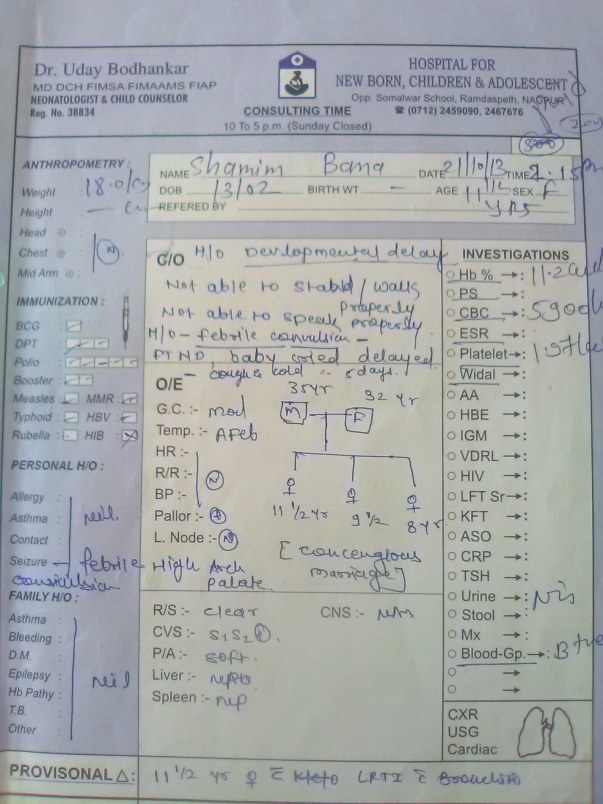 Dr. Uday Bodhankar
MD DCH FIMSA FIMAAMS FIAP
NEONATOLOGIST & CHILD COUNSELOR
Reg. No. 38834
HOSPITAL FOR
NEW BORN, CHILDREN & ADOLESCENT
Opp. Somalwar School, Ramdaspeth, NAGPUR
☎ (0712) 2459090, 2467676
CONSULTING TIME
10 To 5 p.m. (Sunday Closed)
NAME Shamim Bano DATE 21/10/13 TIME 2.15pm
DOB 13/02 BIRTH WT - AGE 11 1/2 yrs SEX F
REFERED BY
ANTHROPOMETRY :
Weight 18.0
Height -
Head
Chest N
Mid Arm
IMMUNIZATION :
BCG
DPT
Polio
Booster
Measles MMR
Typhoid HBV
Rubella HIB
PERSONAL H/O :
Allergy :
Asthma : Nil.
Contact :
Seizure - febrile convulsion
FAMILY H/O :
Asthma :
Bleeding :
D.M. :
Epilepsy : Nil
Hb Pathy :
T.B. :
Other :
C/O H/O Developmental delay
Not able to stand / walk properly
Not able to speak properly
H/O - febrile convulsion -
FTND, baby cried delayed
- cough & cold 5 days
O/E
35yr 32 yr
G.C. :- mod M F
Temp. :- AFeb
HR :-
R/R :- N
BP :-
Pallor :- +
L. Node :- N
11 1/2 yr 9 1/2 8 yr
High Arch palate
R/S :- clear CNS :-
CVS :- S1S2
P/A :- soft.
Liver :- NP
Spleen :- NP
INVESTIGATIONS
Hb % →: 11.2
PS →:
CBC →: 5900
ESR →:
Platelet→:
Widal →:
AA →:
HBE →:
IGM →:
VDRL →:
HIV →:
LFT Sr→:
KFT →:
ASO →:
CRP →:
TSH →:
Urine →:
Stool →:
Mx →:
Blood-Gp. →: B +ve
→
→
CXR
USG
Cardiac
PROVISONAL △: 11 1/2 yr ♀ c̄ LRTI c̄